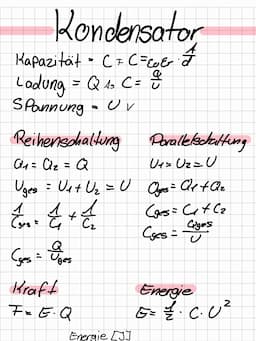 Kondensator
Kapazität = C → C = ε₀εr · A/d
Ladung = Q → C = Q/U
Spannung = U V
Reihenschaltung
Q₁ = Q₂ = Q
Uges = U₁ + U₂ = U
1/Cges = 1/C₁ + 1/C₂
Cges = Q/Uges
Parallelschaltung
U₁ = U₂ = U
Qges = Q₁ + Q₂
Cges = C₁ + C₂
Cges = Qges/U
Kraft
F = E · Q
Energie
E = 1/2 · C · U²
Energie [J]